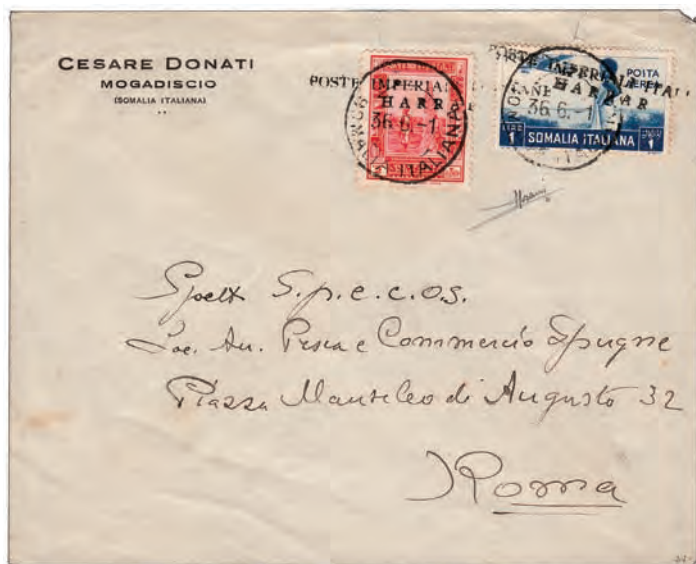 CESARE DONATI
MOGADISCIO
(SOMALIA ITALIANA)
POSTE IMPERIALI
HARR
36.6.-1
ITALIANA
POSTE IMPERIALI ITALI
TANE HARRAR
36.6.-1
POSTA
AEREA
LIRE 1
SOMALIA ITALIANA
1
Spett S.p.e.c.o.s.
Soc. An. Pesca e Commercio Spugne
Piazza Mausoleo di Augusto 32
Roma